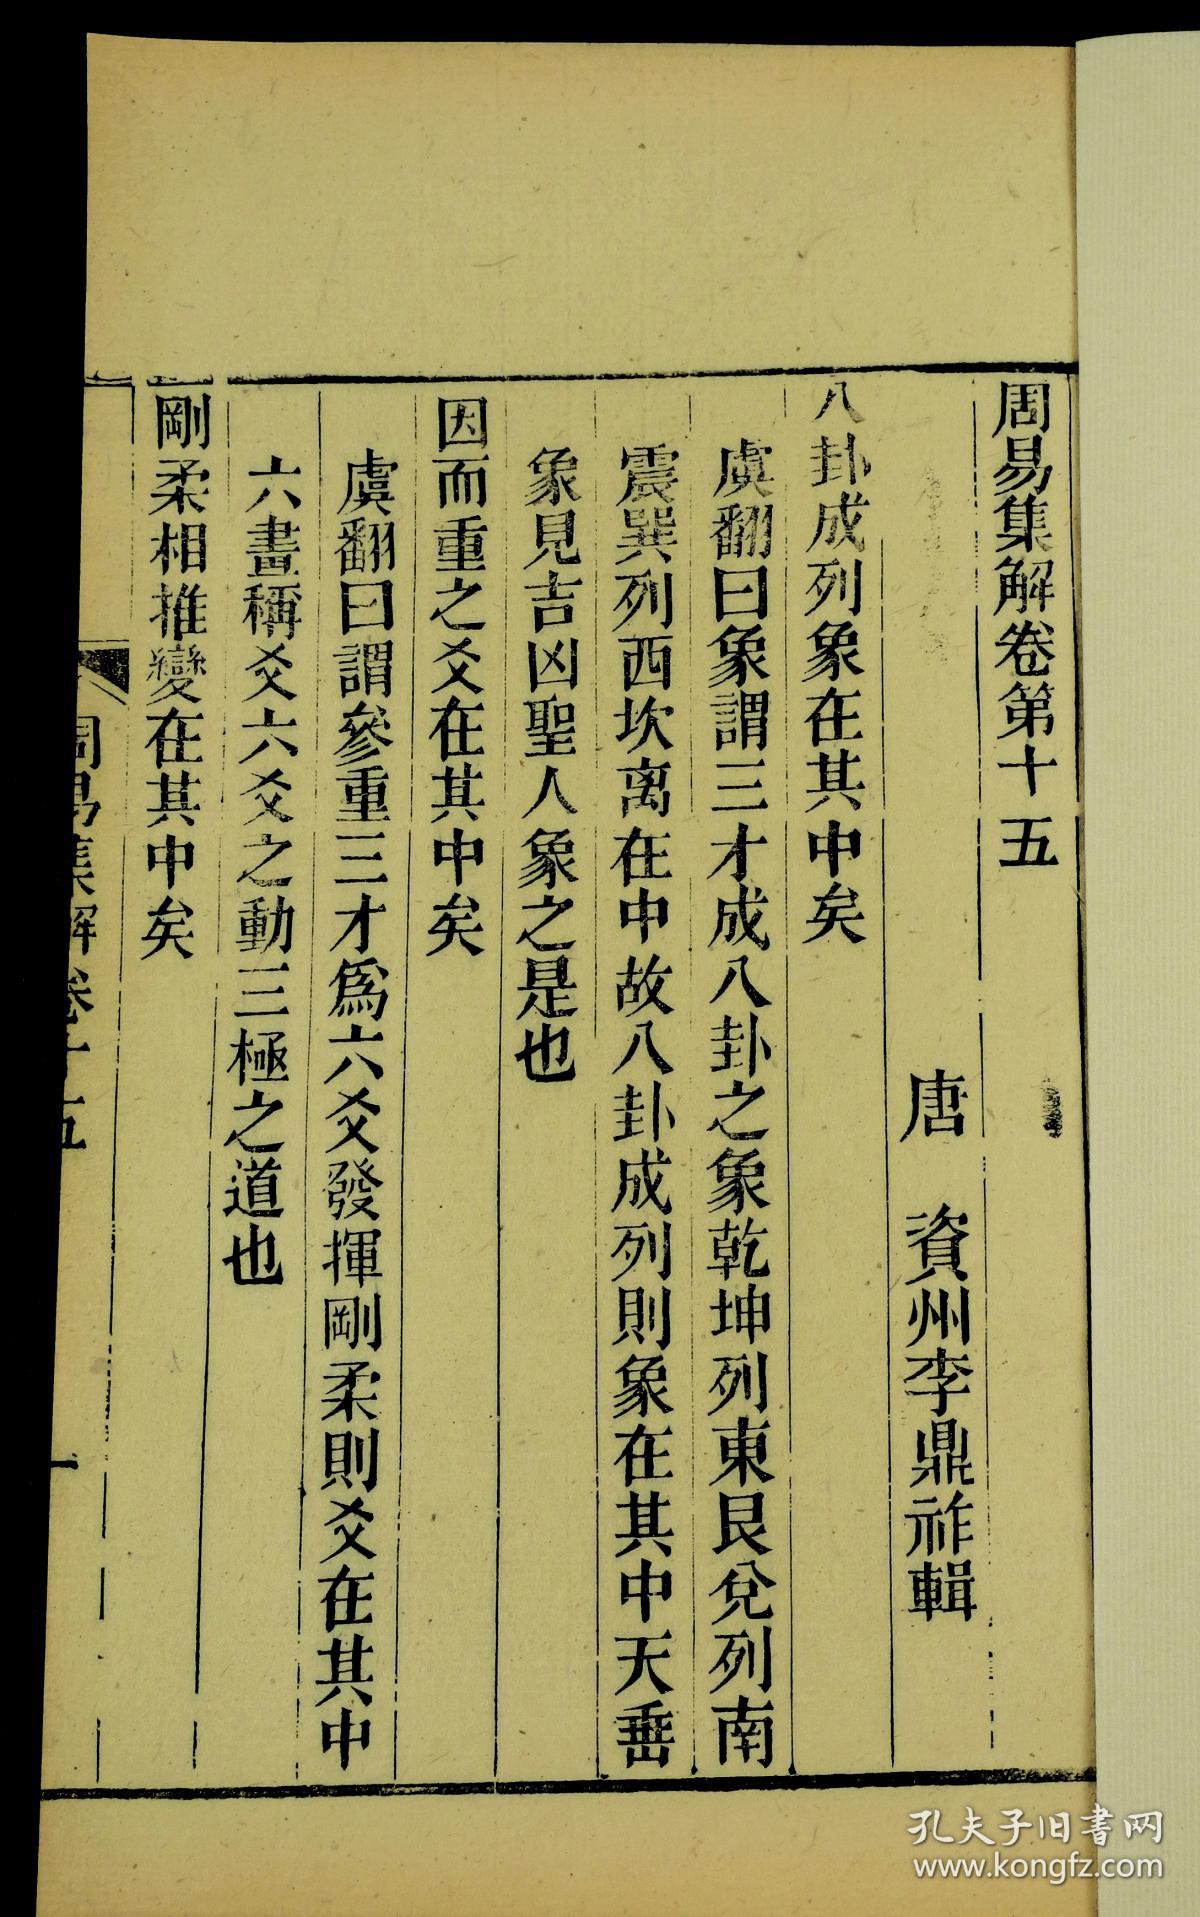 周易集解卷第十五
唐　資州李鼎祚輯
八卦成列象在其中矣
虞翻曰象謂三才成八卦之象乾坤列東艮兌列南
震巽列西坎离在中故八卦成列則象在其中天垂
象見吉凶聖人象之是也
因而重之爻在其中矣
虞翻曰謂參重三才爲六爻發揮剛柔則爻在其中
六畫稱爻六爻之動三極之道也
剛柔相推變在其中矣
周易集解卷十五
一
孔夫子旧书网
www.kongfz.com